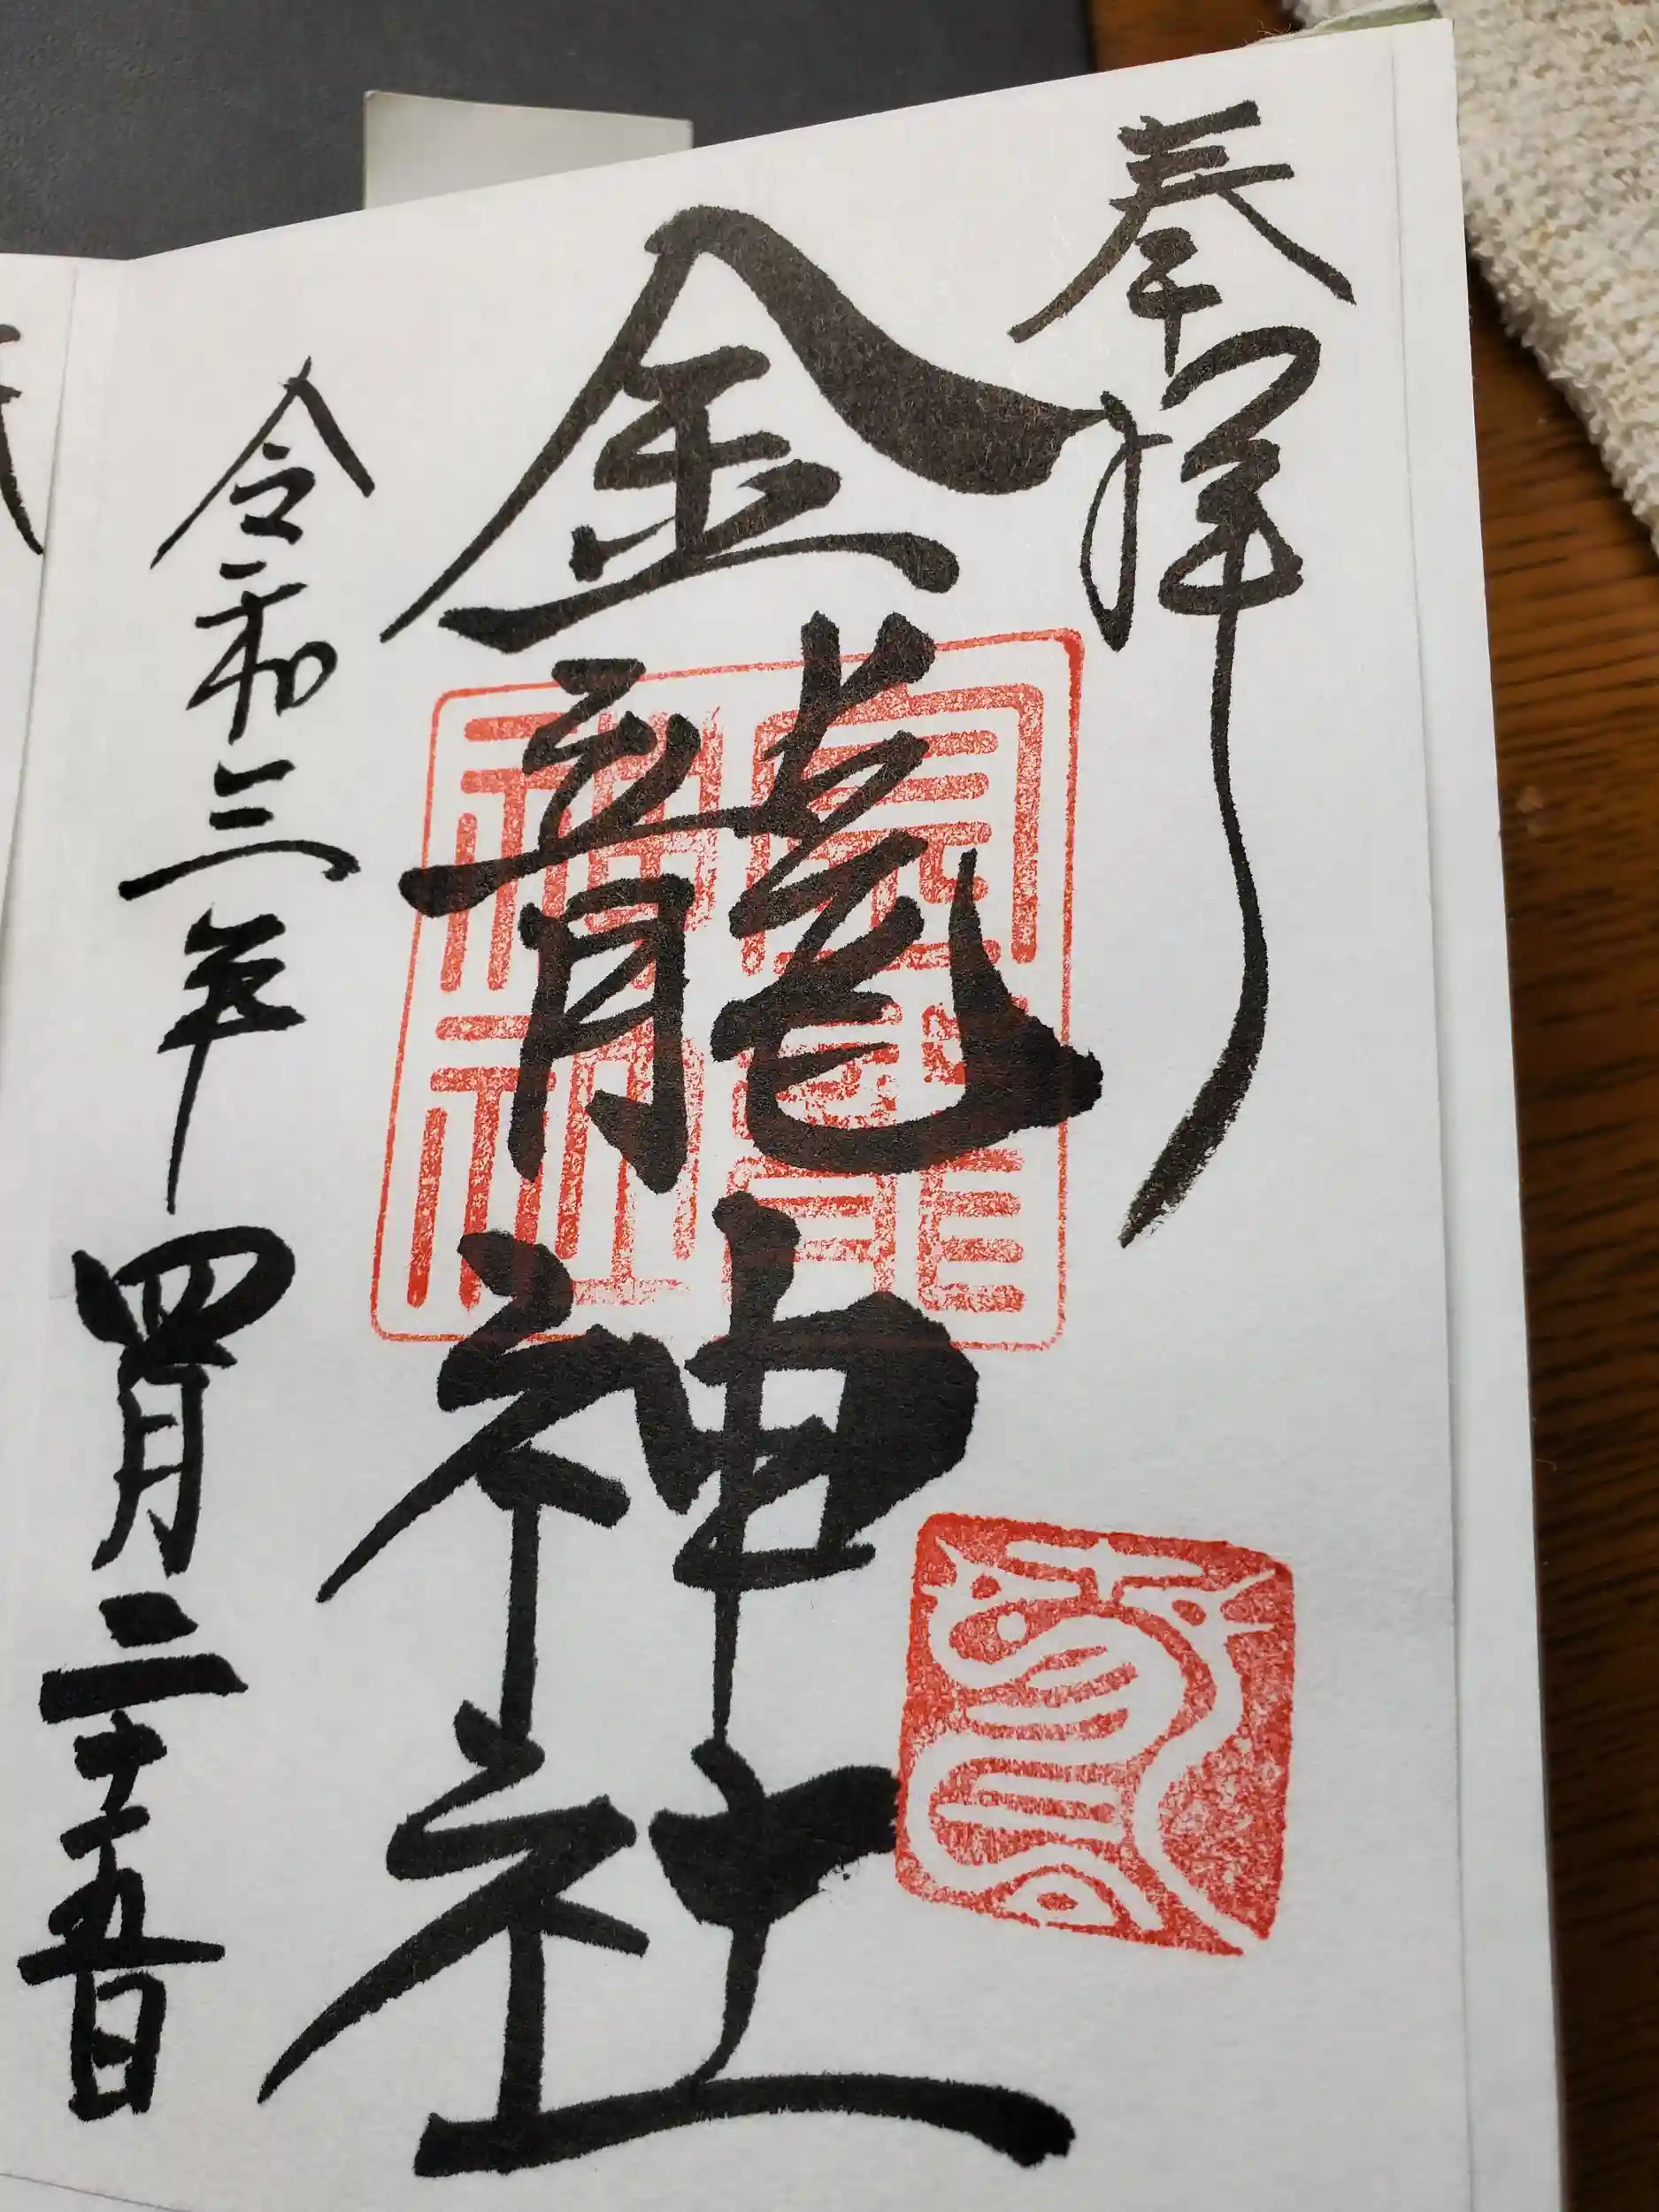 奉拝
金龍神社
令和三年四月二十五日